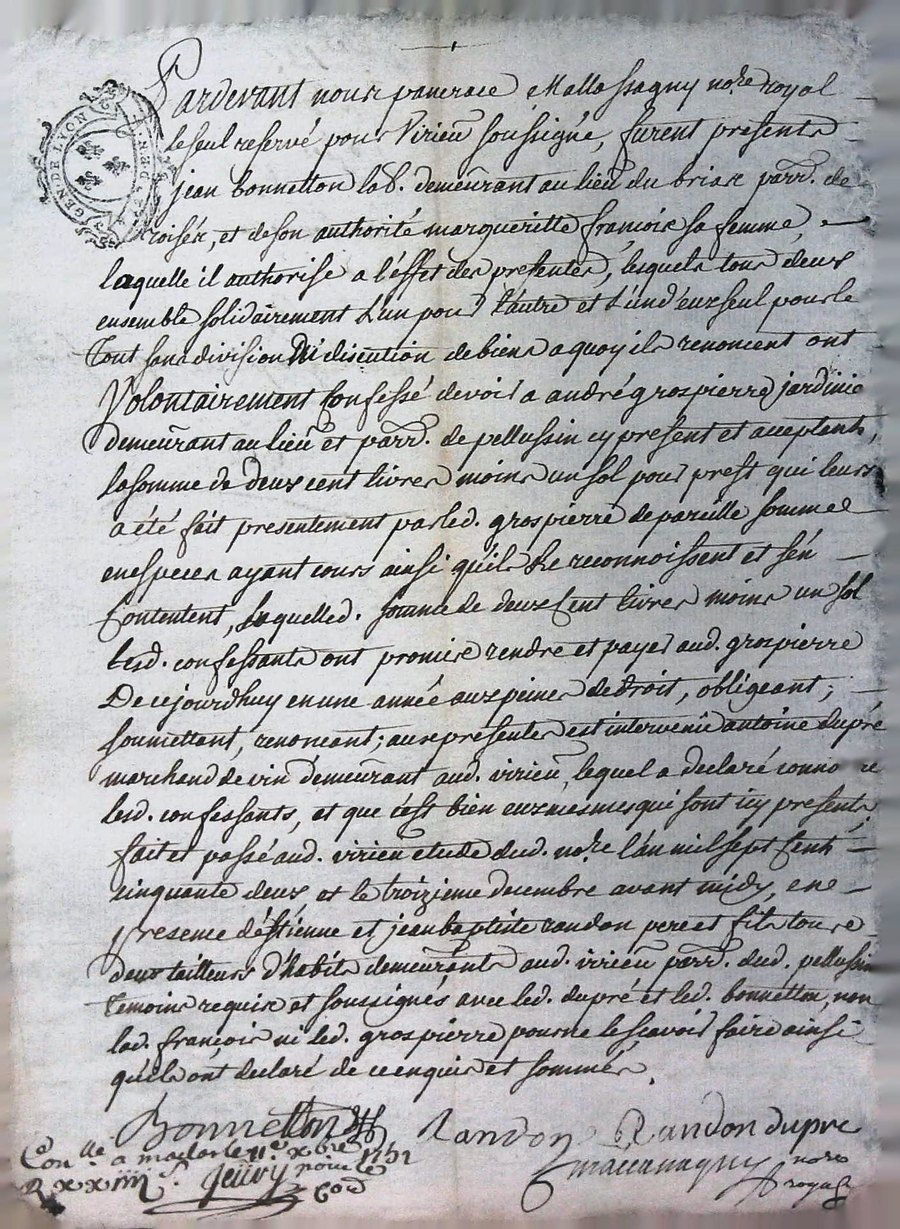 GEN. DE LYON
Pardevant nous pancrace Mallassagny no.re royal
le seul reservé pour Virieu soussigné, furent presents
jean bonnetton lab. demeurant au lieu du briar parr. de
roisés, et de son authorité margueritte françois sa femme,
laquelle il authorise a l'effet des presentes, lesquels tous deux
ensemble solidairement l'un pour l'autre et l'un d'eux seul pour le
Tout sans division Ni discution de biens a quoy ils renoncent ont
Volontairement Confessé devoir a andré grospierre jardinie
demeurant au lieu et parr. de pellussin icy present et acceptant,
la somme de deux cent livres moins un sol pour prest qui leurs
a été fait presentement par led. grospierre de pareille somme
en especes ayant cours ainsi qu'ils Le reconnoissent et s'en
Contentent, Laquelle d. somme de deux Cent livres moins un sol
lesd. confessants ont promis rendre et payer aud. grospierre
De cejourdhuy en une année aux peines de droit, obligeant;
soumettant, renonceant; aux presentes est intervenu antoine dupré
marchand de vin demeurant aud. virieu, lequel a declaré conno re
lesd. confessants, et que c'est bien eux mesmes qui sont icy presents
fait et passé aud. virieu etude dud. no.re l'an mil sept Cent
cinquante deux, et le troizieme decembre avant midy, en
presence d'estienne et jean baptiste randon pere et fils tous
deux tailleurs d'habits demeurants aud. virieu parr. dud. pellussin
temoins requis et soussignés avec led. dupré et led. bonnetton, non
lad. françois ni led. grospierre pour ne le sçavoir faire ainsi
qu'ils ont declaré de ce enquis et sommés.
Bonnetton Randon Randon dupré
Con.lle a maclas le 11.e xbre 1752
R xxiiii s. pour le no.re
Cod royal